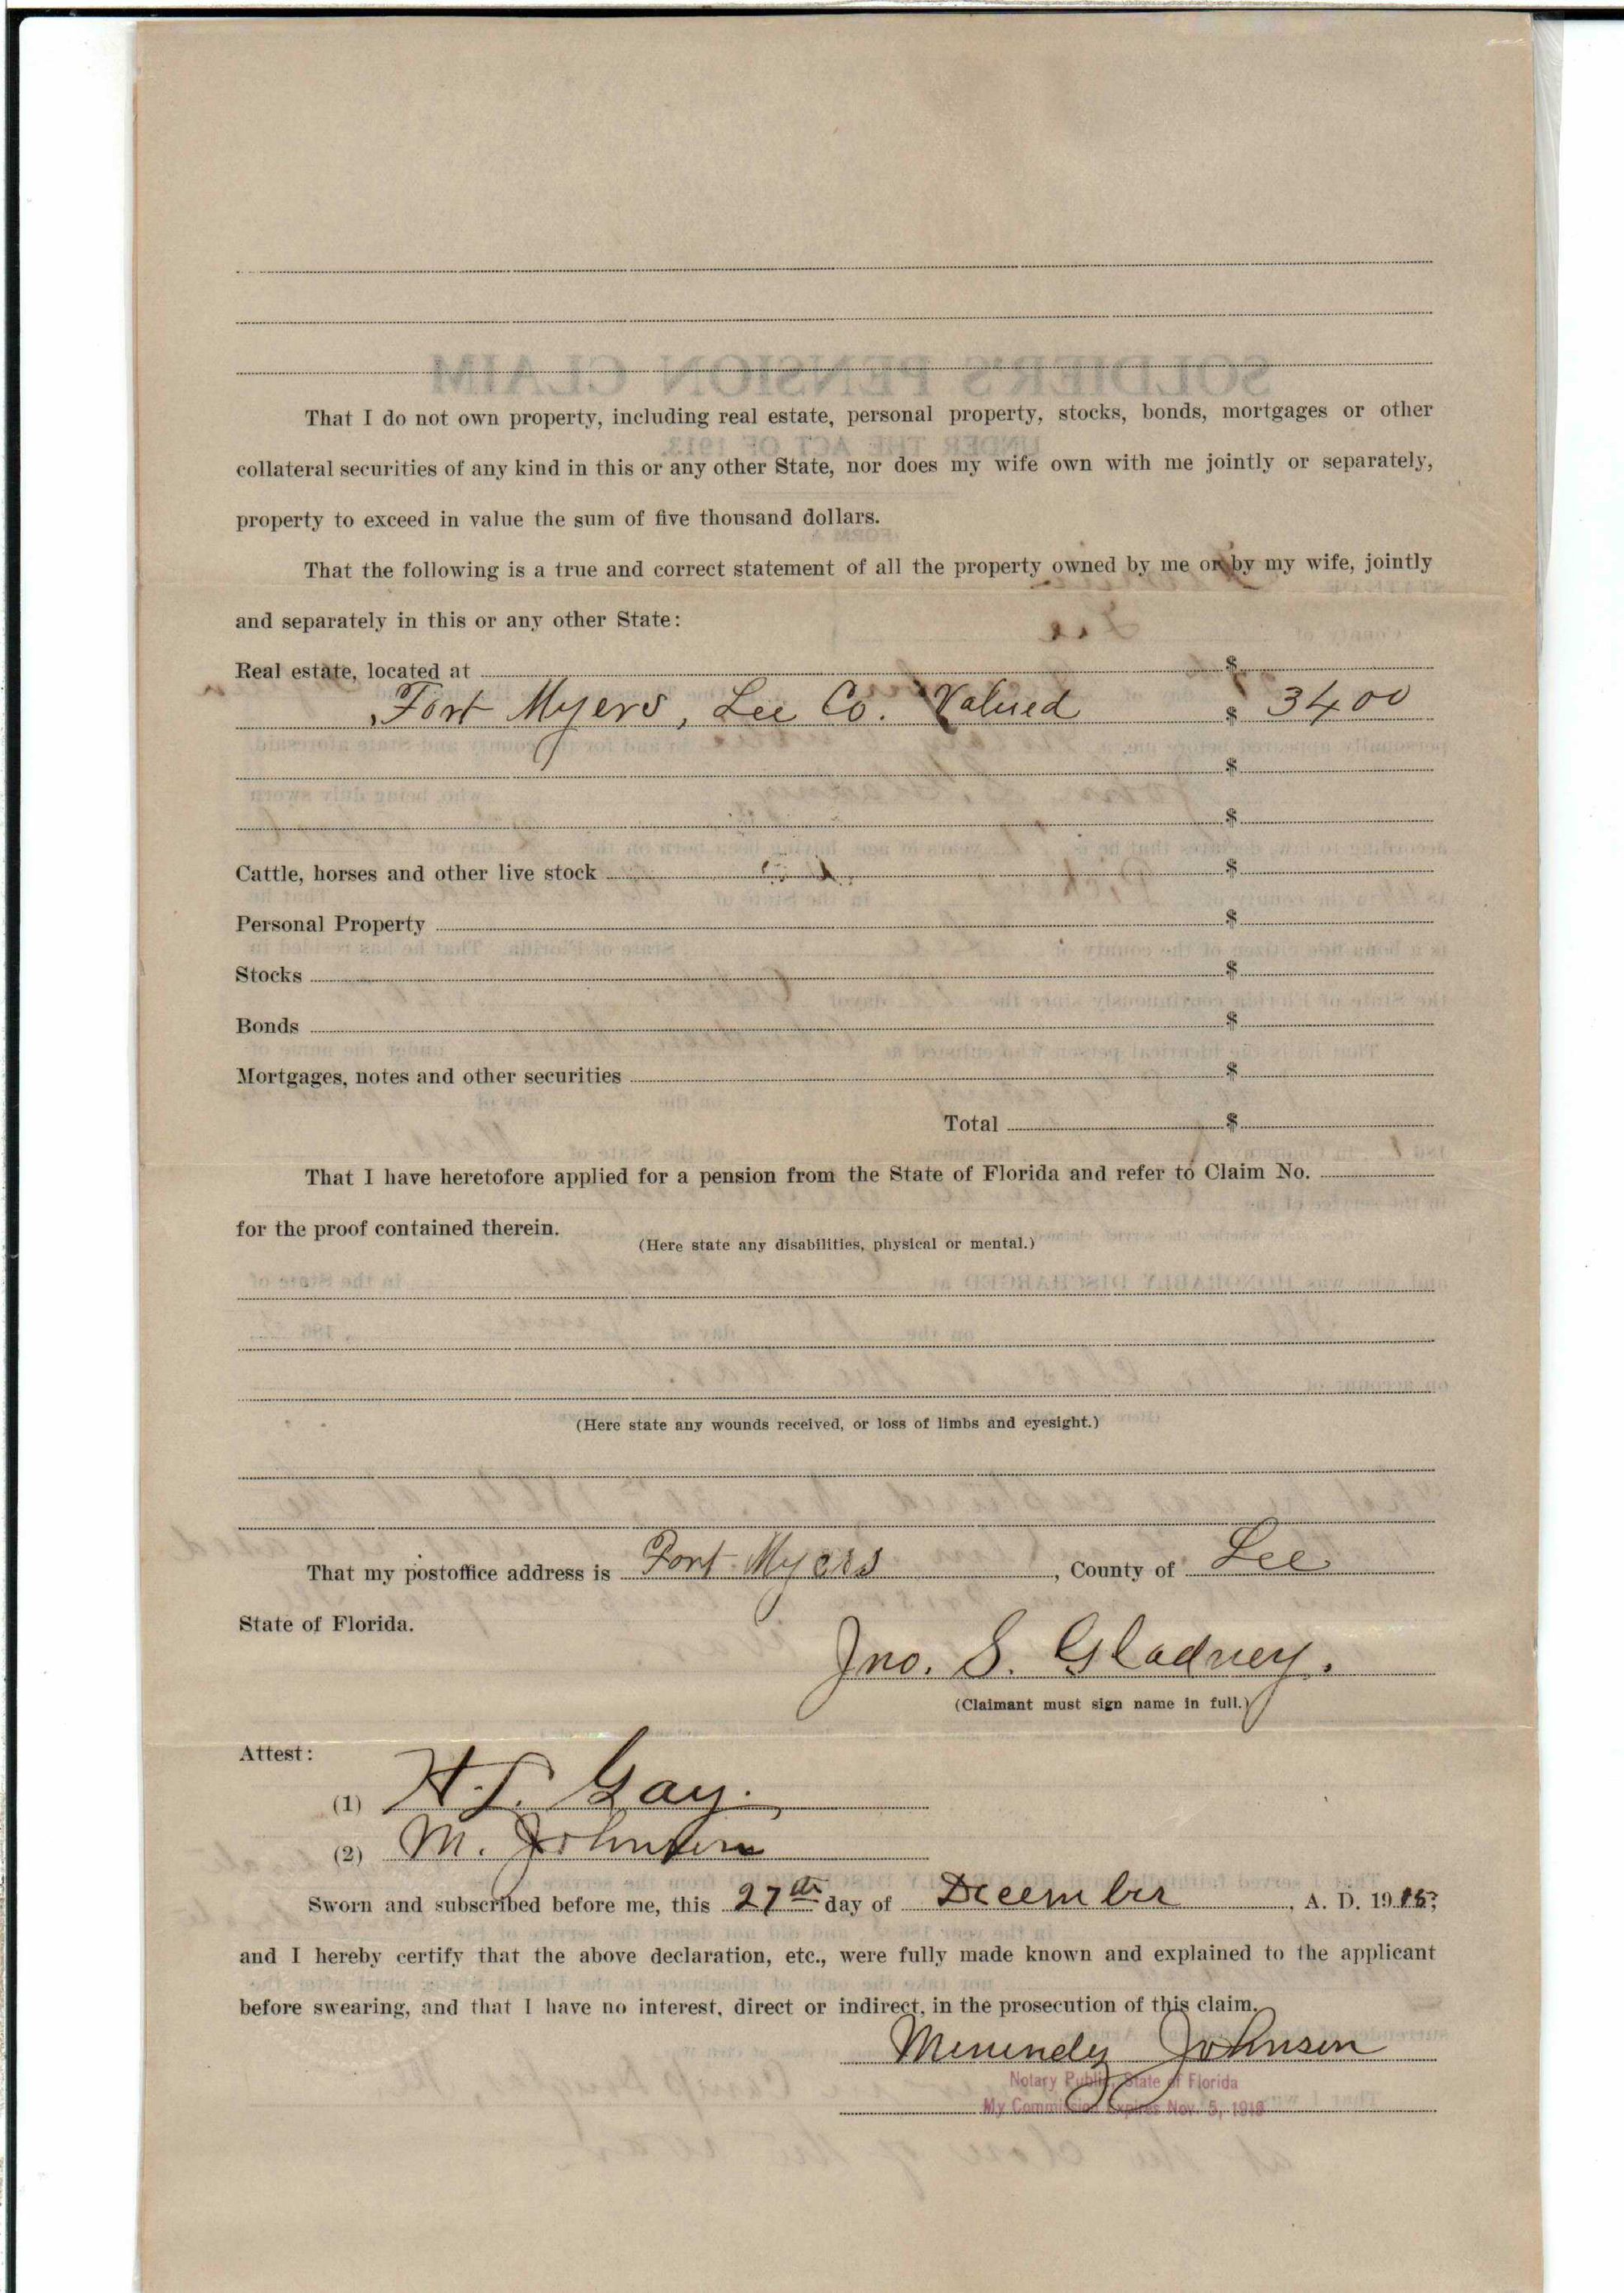 That I do not own property, including real estate, personal property, stocks, bonds, mortgages or other
collateral securities of any kind in this or any other State, nor does my wife own with me jointly or separately,
property to exceed in value the sum of five thousand dollars.
That the following is a true and correct statement of all the property owned by me or by my wife, jointly
and separately in this or any other State:
Real estate, located at $
Fort Myers, Lee Co. Valued $ 3400
$
$
Cattle, horses and other live stock $
Personal Property $
Stocks $
Bonds $
Mortgages, notes and other securities $
Total $
That I have heretofore applied for a pension from the State of Florida and refer to Claim No.
for the proof contained therein.
(Here state any disabilities, physical or mental.)
(Here state any wounds received, or loss of limbs and eyesight.)
That my postoffice address is Fort Myers, County of Lee
State of Florida.
Jno. S. Gladney.
(Claimant must sign name in full.)
Attest:
(1) Gay.
(2) M. Johnson
Sworn and subscribed before me, this 27th day of December, A. D. 1915;
and I hereby certify that the above declaration, etc., were fully made known and explained to the applicant
before swearing, and that I have no interest, direct or indirect, in the prosecution of this claim.
Johnson
Notary Public, State of Florida
My Commission Expires Nov. 5, 1918